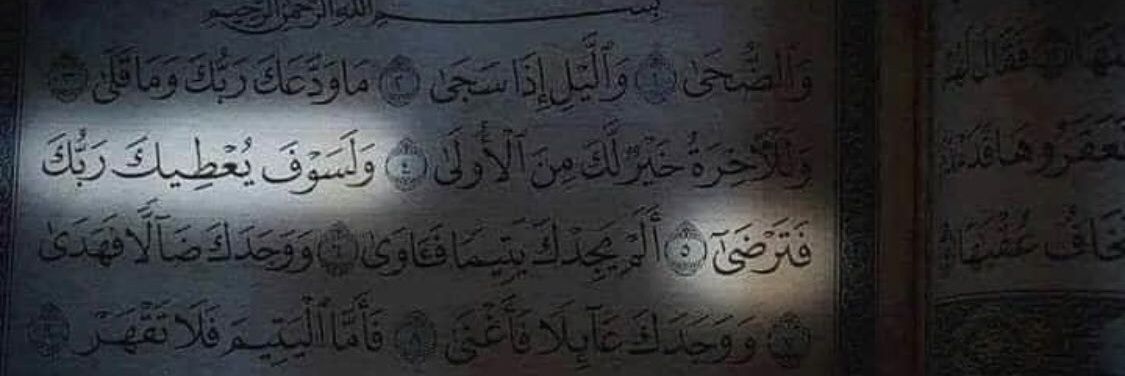 بِسْمِ اللَّهِ الرَّحْمَٰنِ الرَّحِيمِ
وَٱلضُّحَىٰ ١ وَٱلَّيْلِ إِذَا سَجَىٰ ٢ مَا وَدَّعَكَ رَبُّكَ وَمَا قَلَىٰ ٣
وَلَلْـَٔاخِرَةُ خَيْرٌ لَّكَ مِنَ ٱلْأُولَىٰ ٤ وَلَسَوْفَ يُعْطِيكَ رَبُّكَ
فَتَرْضَىٰٓ ٥ أَلَمْ يَجِدْكَ يَتِيمًا فَـَٔاوَىٰ ٦ وَوَجَدَكَ ضَآلًّا فَهَدَىٰ
٧ وَوَجَدَكَ عَآئِلًا فَأَغْنَىٰ ٨ فَأَمَّا ٱلْيَتِيمَ فَلَا تَقْهَرْ ٩
فَقَالَ لَهُمْ
عُقْبَٰهَا